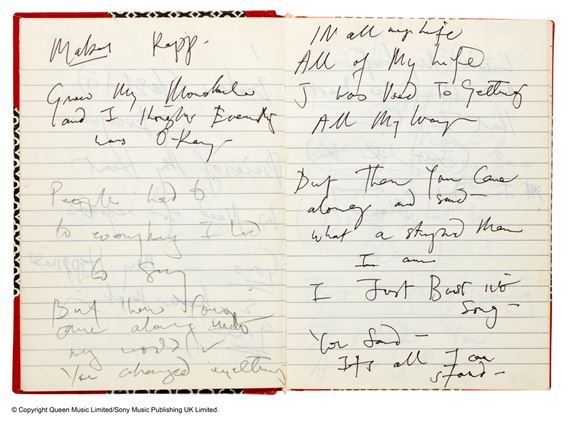 Makes Happ-
Grew My Moustache
(and I thought Everything
was O-Kay-
People had to
to everything I had
to Say
But then You
came along into
my world
You changed everything
IN all my life
All of My Life
I was Used To Getting
All My Way
But Then You Came
along and said-
What a stupid Man
I am
I Just Burst into
Song-
You Said-
It's all I can
stand-
© Copyright Queen Music Limited/Sony Music Publishing UK Limited.